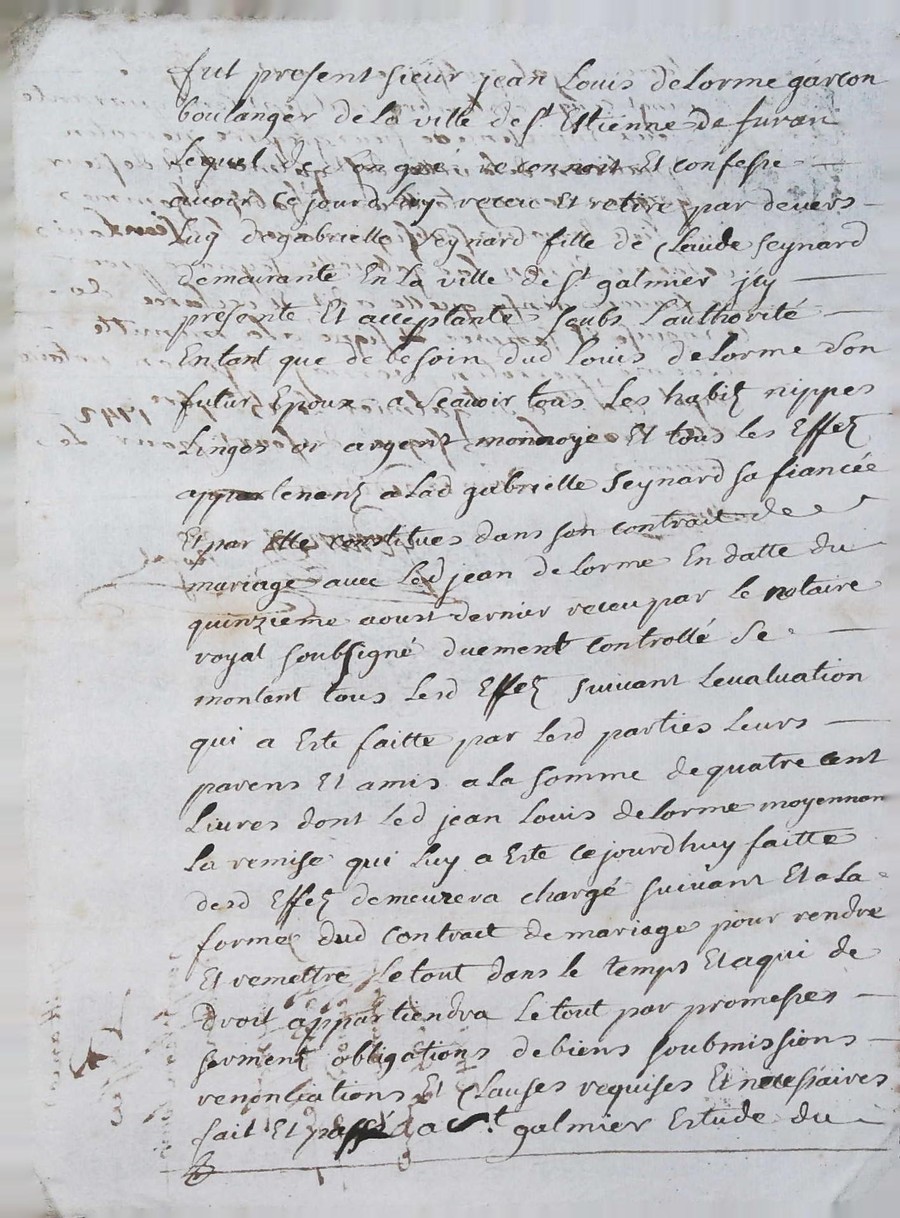 fut present sieur jean Louis delorme garcon
boulanger dela ville de st Estienne de furan
Lequel de son gré reconnoit Et confesse
avoir ce jourdhuy receu Et retiré par devers
Luy degabrielle seynard fille de Claude seynard
demeurante En La ville de st galmier jcy
presente Et acceptante soubs Lauthorité
Entant que de besoin dud Louis delorme son
futur Epoux a scavoir tous Les habits nippes
Linges or argent monnoye Et tous les Effets
appartenent a Lad gabrielle seynard sa fiancée
Et par Elle constitues dans son contrait de
mariage avec Led jean delorme En datte du
quinzieme aoust dernier receu par Le notaire
royal soubsigné duement controllé se
montant tous Lesd Effets suivant Levaluation
qui a Esté faitte par Lesd parties Leurs
parens Et amis a la somme dequatre cent
Livres dont Led jean Louis delorme moyennan
La remise qui Luy a Esté cejourdhuy faitte
desd Effets demeurera chargé suivant Et a La
forme dud contrait demariage pour rendre
Et remettre Le tout dans le temps Et aqui de
droit appartiendra Le tout par promesses
serment obligations debiens soubmissions
renontiations Et Clauses requises Et necessaires
fait Et passé a st galmier Estude du
1742